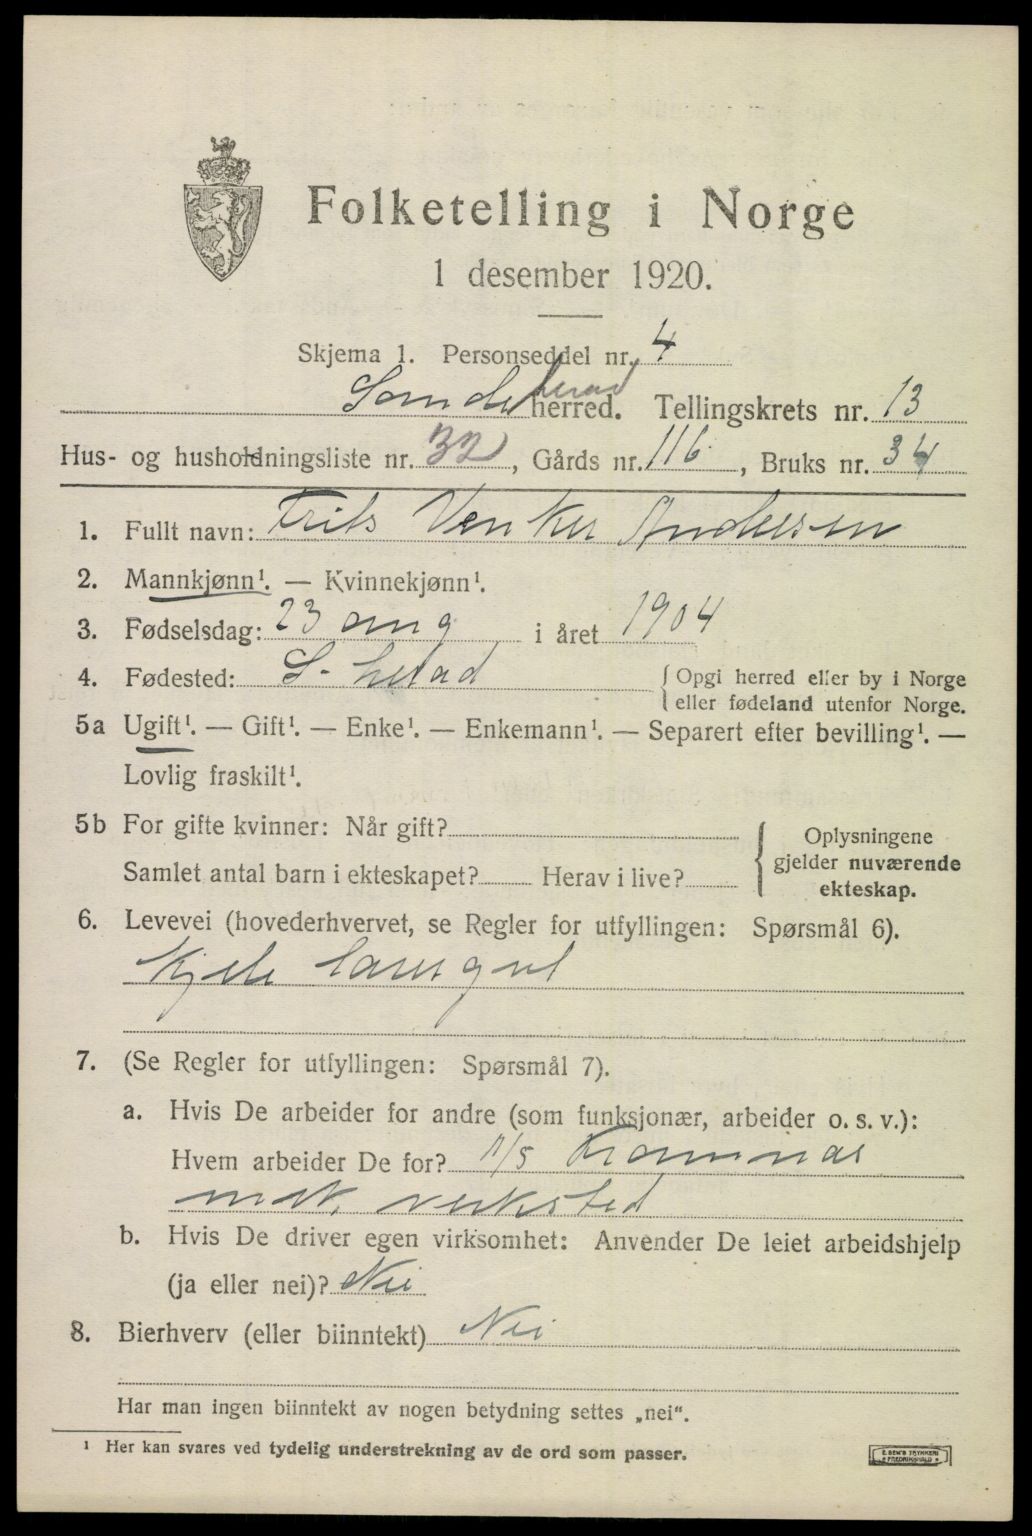 Folketelling i Norge
1 desember 1920.
Skjema 1. Personseddel nr. 4
Sandeherad herred. Tellingskrets nr. 13
Hus- og husholdningsliste nr. 32, Gårds nr. 116, Bruks nr. 34
1. Fullt navn: Frits Venker Andersen
2. Mannkjønn¹. — Kvinnekjønn¹.
3. Fødselsdag: 23 aug i året 1904
4. Fødested: S. herad { Opgi herred eller by i Norge
eller fødeland utenfor Norge.
5a Ugift¹. — Gift¹. — Enke¹. — Enkemann¹. — Separert efter bevilling¹. —
Lovlig fraskilt¹.
5b For gifte kvinner: Når gift?
Samlet antal barn i ekteskapet? Herav i live?
Oplysningene
gjelder nuværende
ekteskap.
6. Levevei (hovederhvervet, se Regler for utfyllingen: Spørsmål 6).
Kjele
7. (Se Regler for utfyllingen: Spørsmål 7).
a. Hvis De arbeider for andre (som funksjonær, arbeider o. s. v.):
Hvem arbeider De for? A/S Framnæs
mek. verksted
b. Hvis De driver egen virksomhet: Anvender De leiet arbeidshjelp
(ja eller nei)? Nei
8. Bierhverv (eller biinntekt) Nei
Har man ingen biinntekt av nogen betydning settes „nei“.
¹ Her kan svares ved tydelig understrekning av de ord som passer.
E. SEM'S TRYKKERI
FREDRIKSHALD